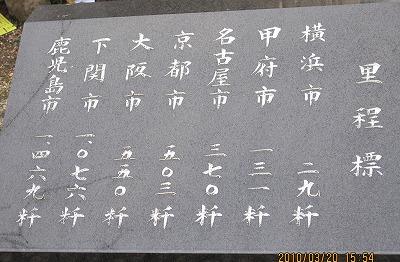 里程標
横浜市 二九粁
甲府市 一三一粁
名古屋市 三七〇粁
京都市 五〇三粁
大阪市 五五〇粁
下関市 一、〇七六粁
鹿児島市 一、四六九粁
2010/03/20 15:54